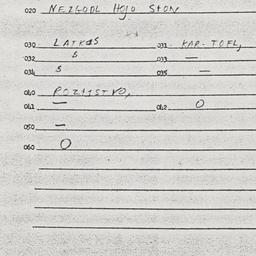 020 NEZGODL HOJO STON
030 LATKAS 031 KAR-TOFL,
032 S 033 —
034 S 035 —
040 POZAJSTVO,
041 — 042 O
050 —
060 O